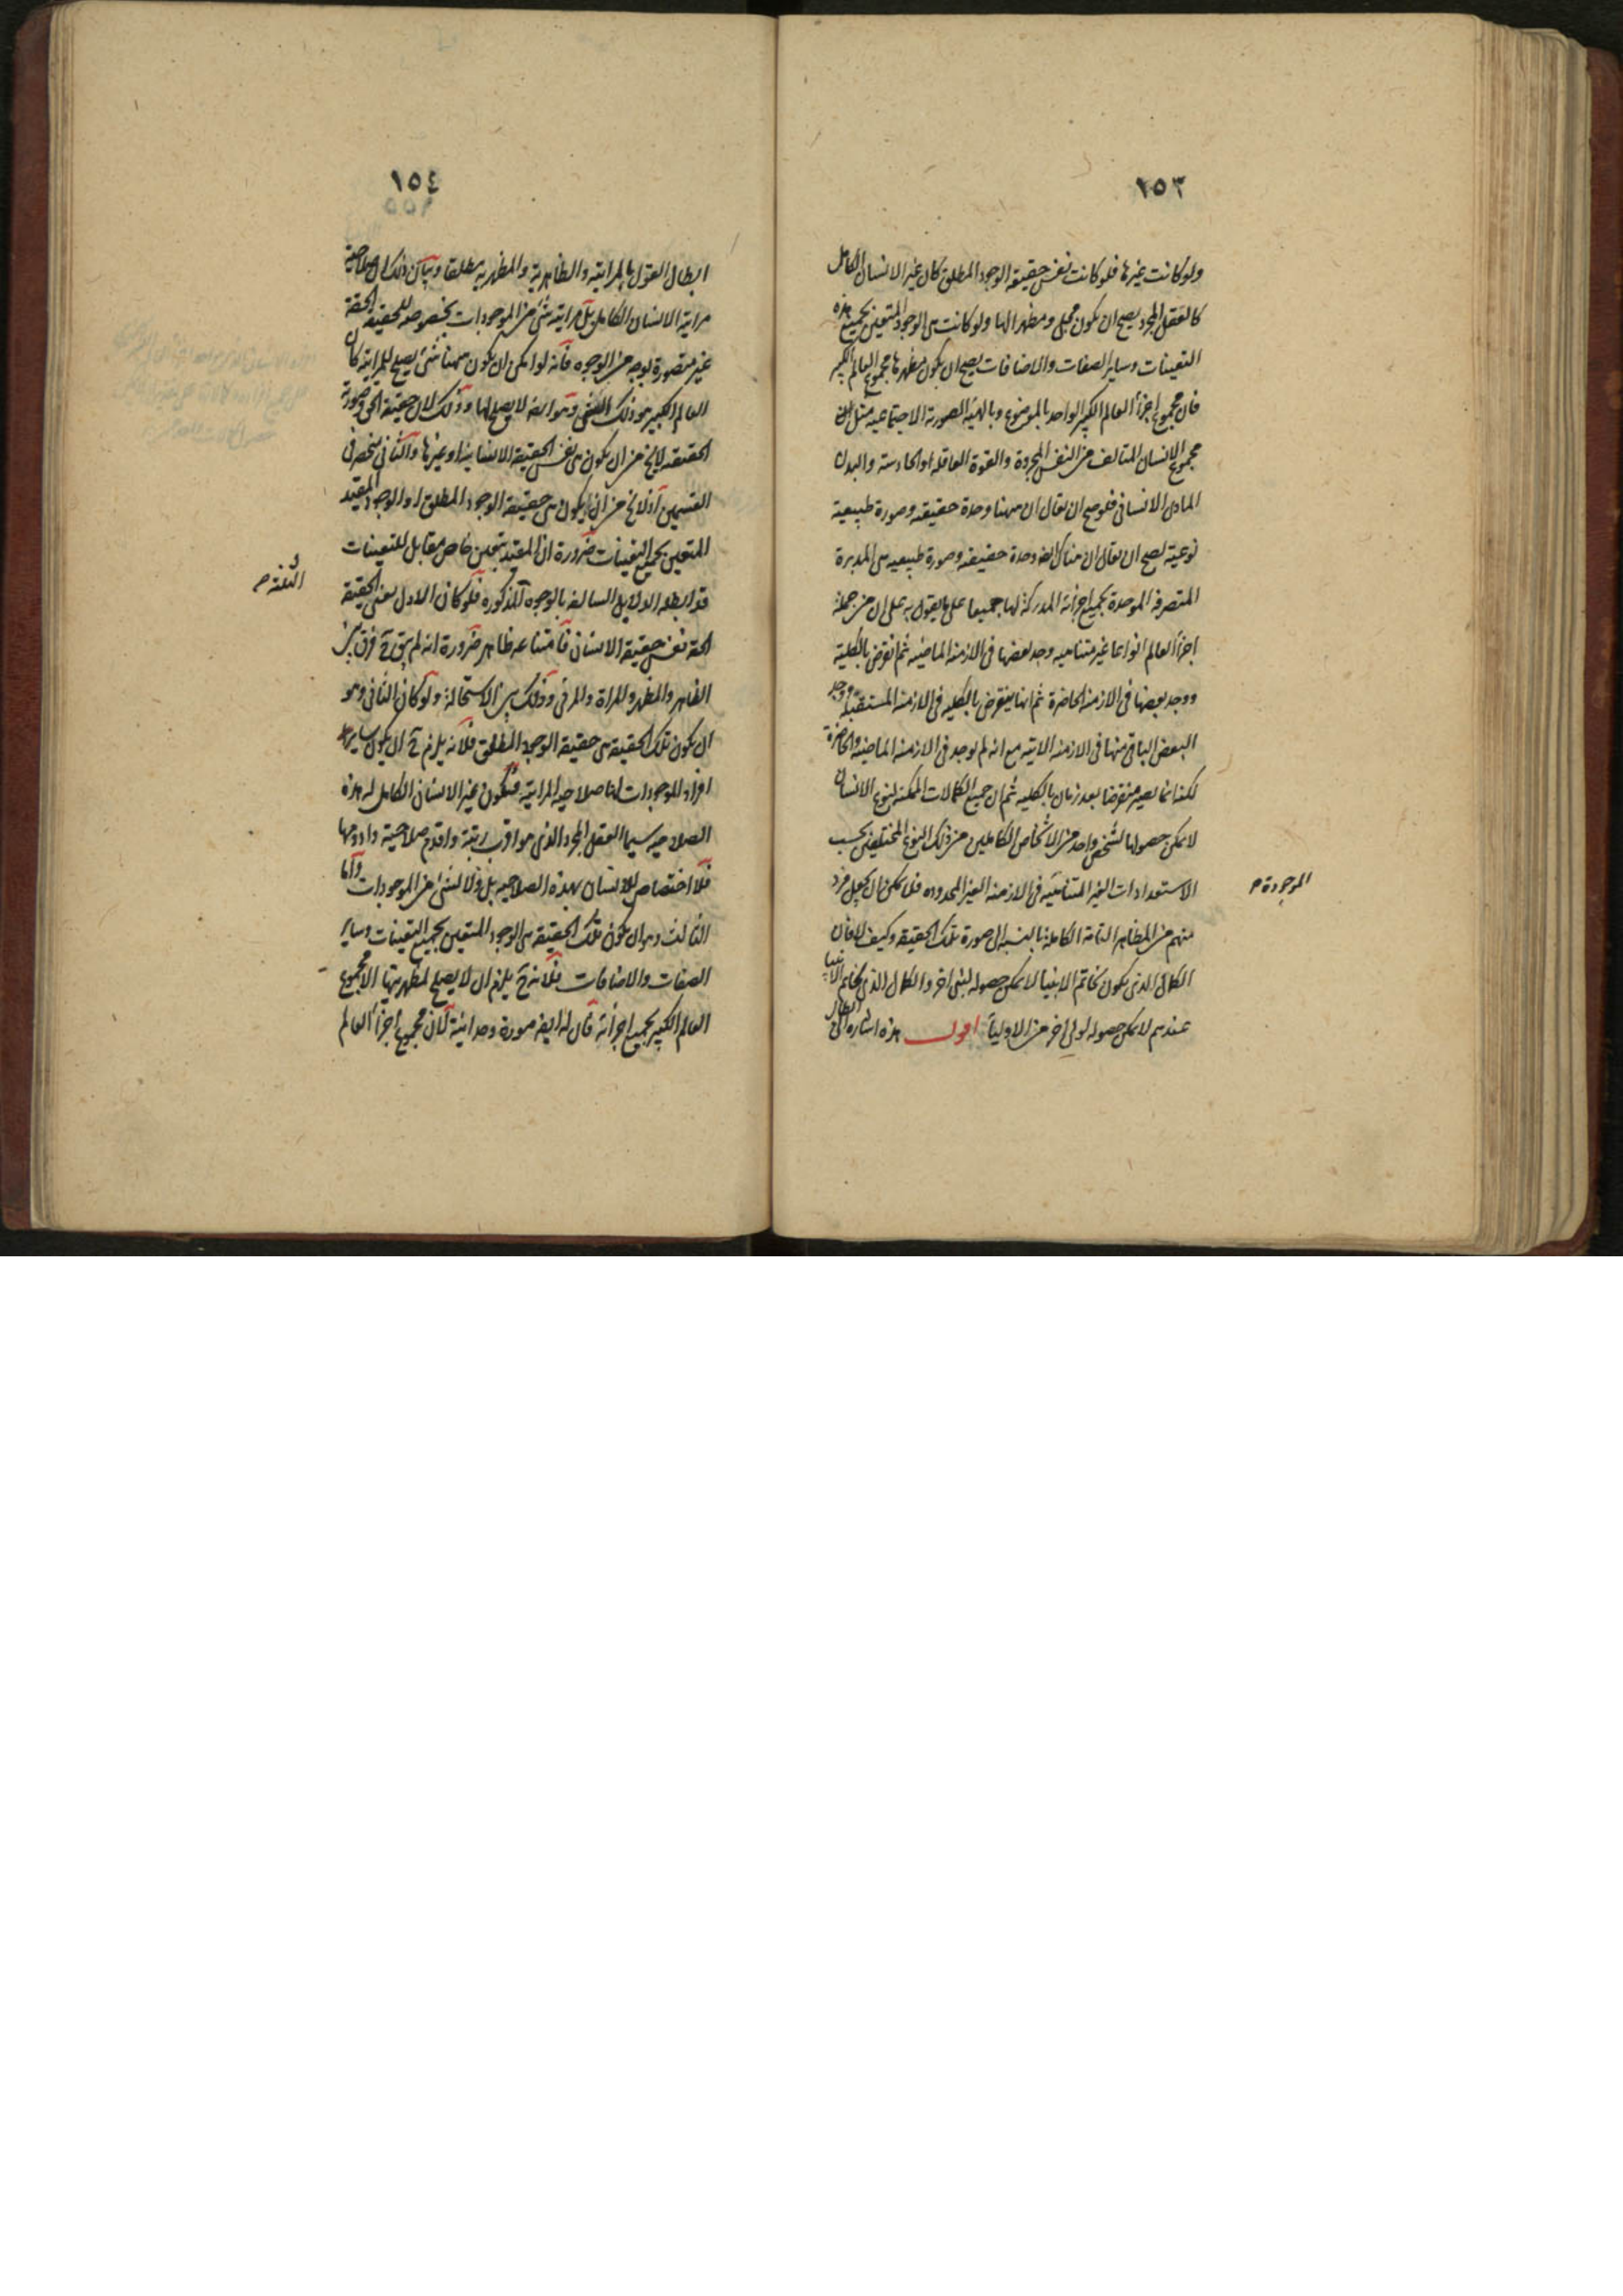 ١٥٣
ولو كانت غيرها فلو كانت نفس حقيقة الوجود المطلق كان غير الانسان الكامل
كالعقل المجرد يصح ان يكون مجلى ومظهرا لها ولو كانت هى الوجود المتعين بجميع هذه
التعينات وساير الصفات والاضافات يصح ان يكون مظهرها مجموع العالم الكبير
فان مجموع اجزأ العالم الكبير الواحد بالموضوع وبالهيئة الصورية الاجتماعية مثل
مجموع الانسان المتالف من النفس المجردة والقوة العاقله او الحادسته والبدن
المادى الانسانى فلو صح ان يقال ان ههنا وحدة حقيقيه وصورة طبيعية
نوعية يصح ان يقال ان هناك ايضه وحدة حقيقيه وصورة طبيعيه هى المدبرة
المتصرفه الموحدة بجميع اجزائه المدركة لها جميعا على ما يقول به على ان من جملة
اجزأ العالم انواعا غير متناهيه وجد بعضها فى الازمنه الماضيه ثم انقرض بالكلية
ووجد بعضها فى الازمنه الحاضرة ثم انها ينقرض بالكليه فى الازمنه المستقبلة ووجد
البعض الباقى منها فى الازمنه الاتيه مع انه لم يوجد فى الازمنه الماضيه والحاضرة
لكنه انما يصير منقرضا بعد زمان بالكليه ثم ان جميع الكمالات الممكنه لنوع الانسان
لا يمكن حصولها لشخص واحد من الاشخاص الكاملين من ذلك النوع المختلفين بحسب
الاستعدادات الغير المتناهية فى الازمنه الغير المحدوده فلا يمكن ان يجعل فرد
الموجودة م
منهم من المظاهر التامة الكاملة بالنسبه الى صورة تلك الحقيقه وكيف لا فان
الكمال الذى يكون لخاتم الانبيا لا يمكن حصوله لنبى اخر والكمال الذى لخاتم الاوليا
عندهم لا يمكن حصوله لولى اخر من الاوليأ اقول هذه اشاره الى ابطال
١٥٤
ابطال القول بالمراتية والظاهرية والمظهرية مطلقا وبيان ذلك ان صلاحية
مراتية الانسان الكامل بل مراتية شئ من الموجودات بخصوصه للحقيقة الحقة
غير متصورة بوجه من الوجوه فانه لو امكن ان يكون ههنا شئ يصلح للمراتية كان
العالم الكبير هو ذلك الشئ وهو ايضه لا يصلح لها وذلك لان حقيقة الحق وصورته
الحقيقيه لا يخ من ان يكون هى نفس الحقيقة الانسانية او غيرها والثانى ينحصر فى
القسمين اذ لا يخ من ان يكون هى حقيقة الوجود المطلق او الوجود المقيد
المتعين بجميع التعينات ضرورة ان المقيد بتعين خاص مقابل للتعينات
قد ابطله الدلايل السالفه بالوجوه المذكوره فلو كان الاول يعنى الحقيقة
الثلثة م
الحقة نفس حقيقة الانسان فامتناعه ظاهر ضرورة انه لم يبق ح فرق بين
الظاهر والمظهر والمراة والمرئى وذلك بين الاستحالة ولو كان الثانى وهو
ان يكون تلك الحقيقة هى حقيقة الوجود المطلق فلانه يلزم ح ان يكون ساير
افراد الموجودات لها صلاحية المراتية فيكون غير الانسان الكامل له هذه
الصلاحيه سيما العقل المجرد الذى هو اقرب رتبة واقدم صلاحية وادومها
فلا اختصاص للانسان بهذه الصلاحيه بل ولا لشئ من الموجودات واما
الثالث وهو ان يكون تلك الحقيقة هى الوجود المتعين بجميع التعينات وساير
الصفات والاضافات فلانه ح يلزم ان لا يصلح لمظهريتها الا مجموع
العالم الكبير بجميع اجزائه فان له ايضه صورة وحدانية لان مجموع اجزأ العالم